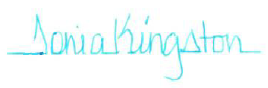 Sonia Kingston